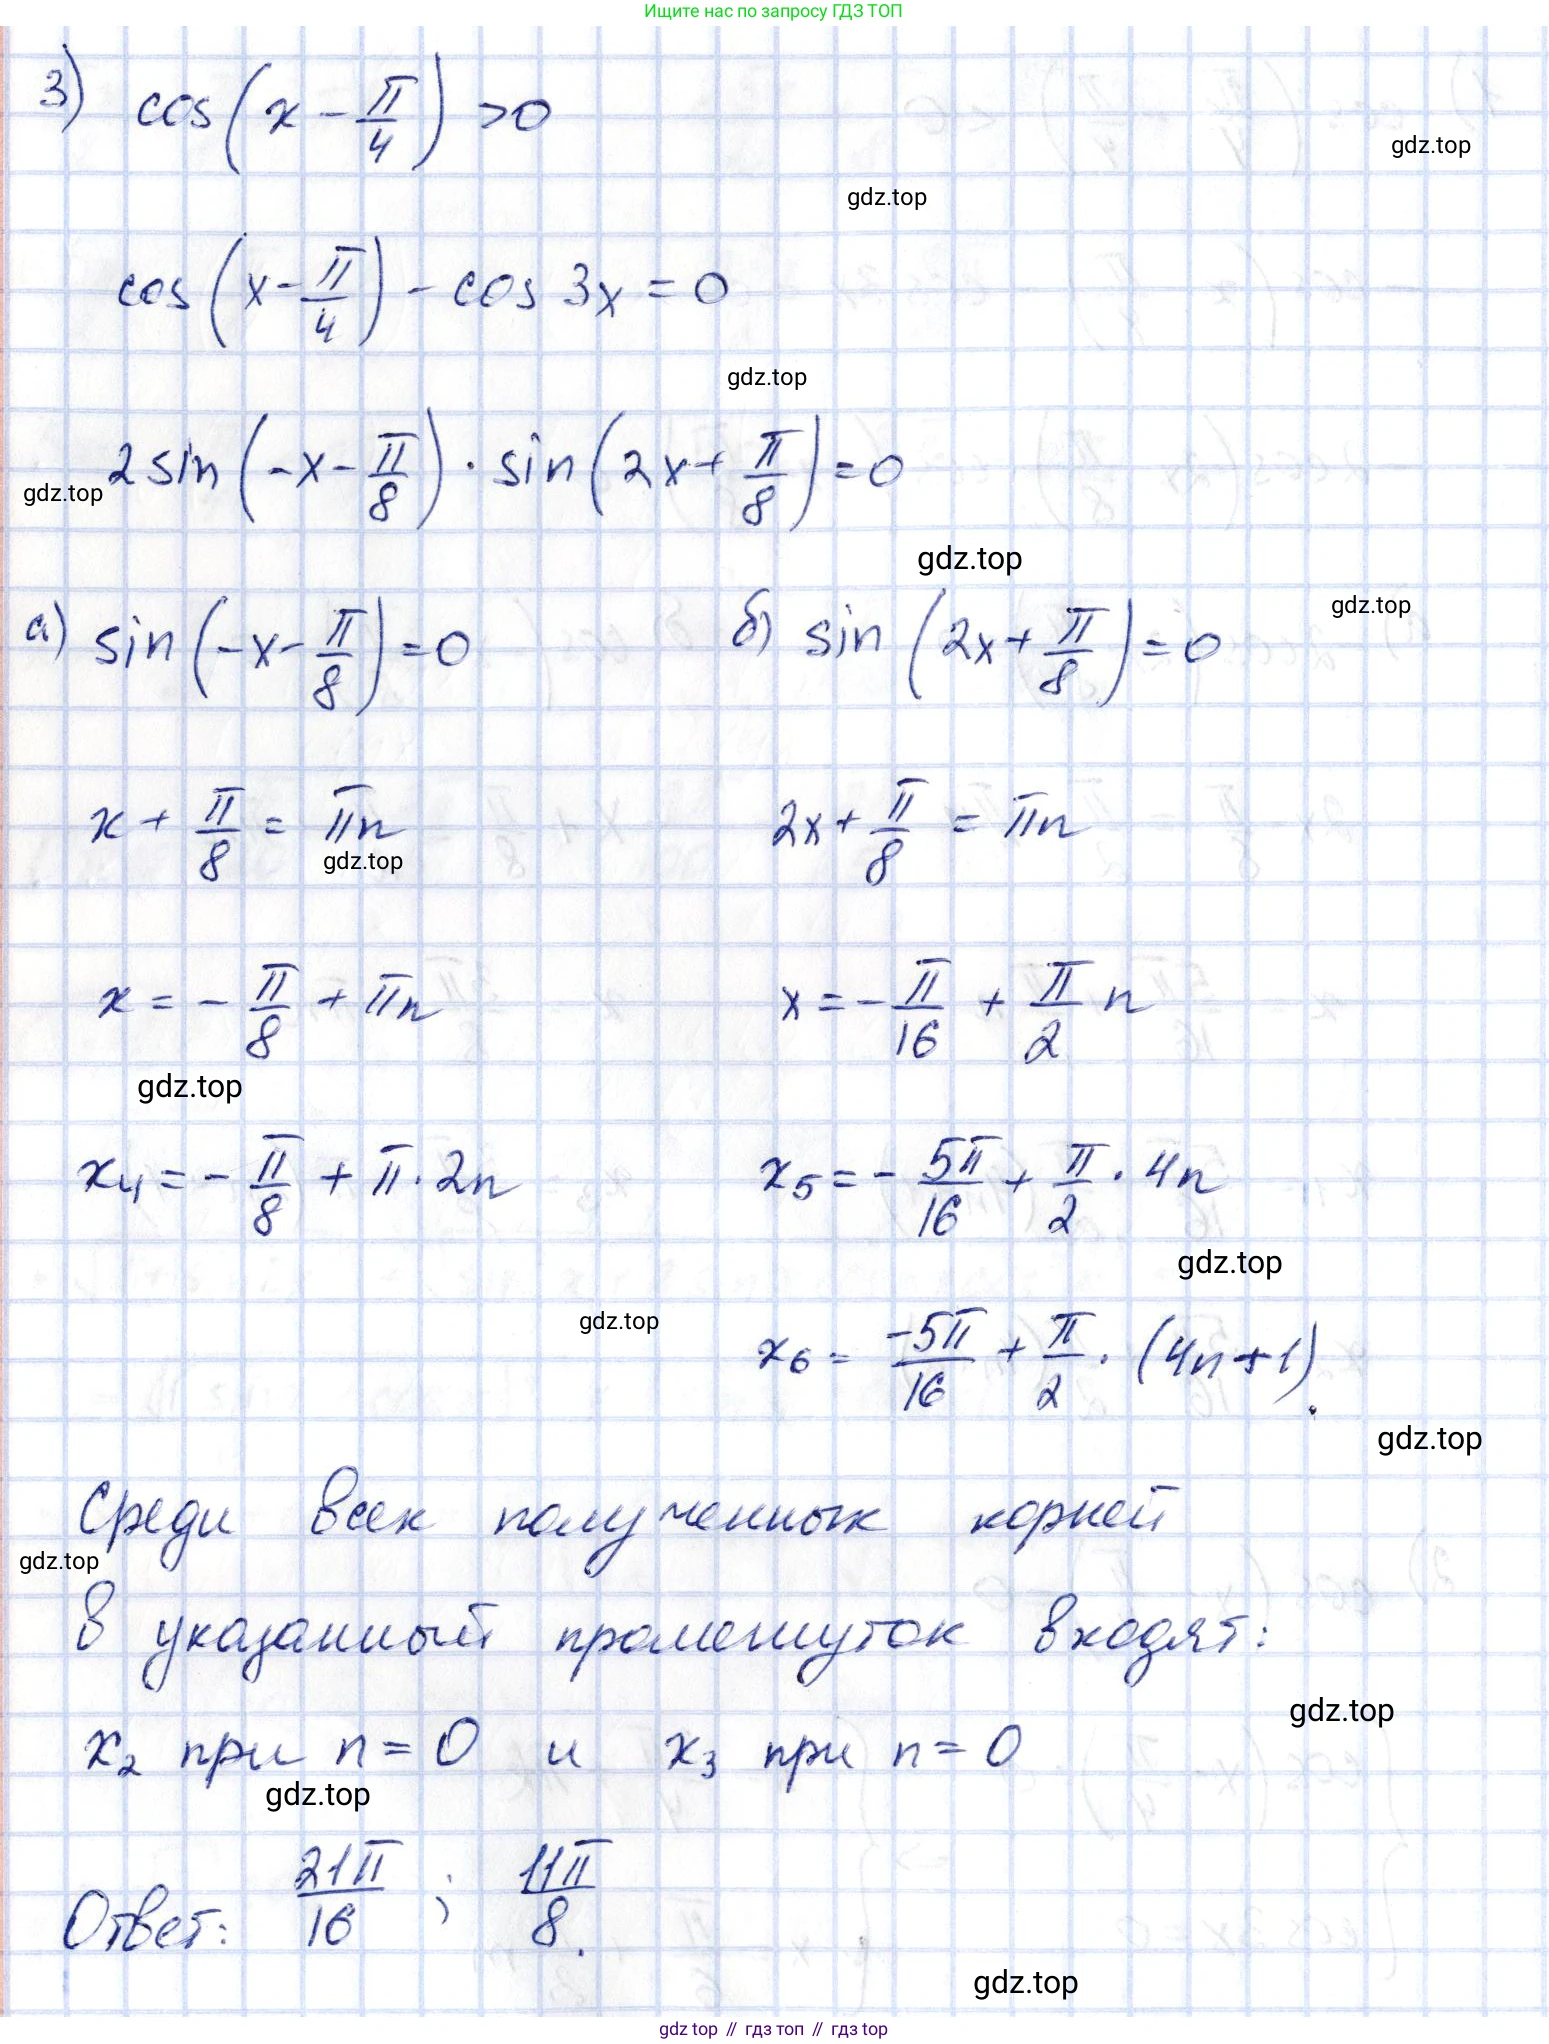 Ищите нас по запросу ГДЗ ТОП
3) cos(x - π/4) > 0
gdz.top
gdz.top
cos(x - π/4) - cos 3x = 0
gdz.top
2 sin(-x - π/8) · sin(2x + π/8) = 0
gdz.top
gdz.top
а) sin(-x - π/8) = 0 б) sin(2x + π/8) = 0
gdz.top
x + π/8 = πn 2x + π/8 = πn
gdz.top
x = - π/8 + πn x = - π/16 + π/2 n
gdz.top
x₄ = - π/8 + π · 2n x₅ = - 5π/16 + π/2 · 4n
gdz.top
gdz.top
x₆ = -5π/16 + π/2 · (4n+1).
gdz.top
Среди всех полученных корней
gdz.top
в указанный промежуток входят:
gdz.top
x₂ при n = 0 и x₃ при n = 0
gdz.top
Ответ: 21π/16 ; 11π/8.
gdz.top
gdz top // гдз топ // гдз top